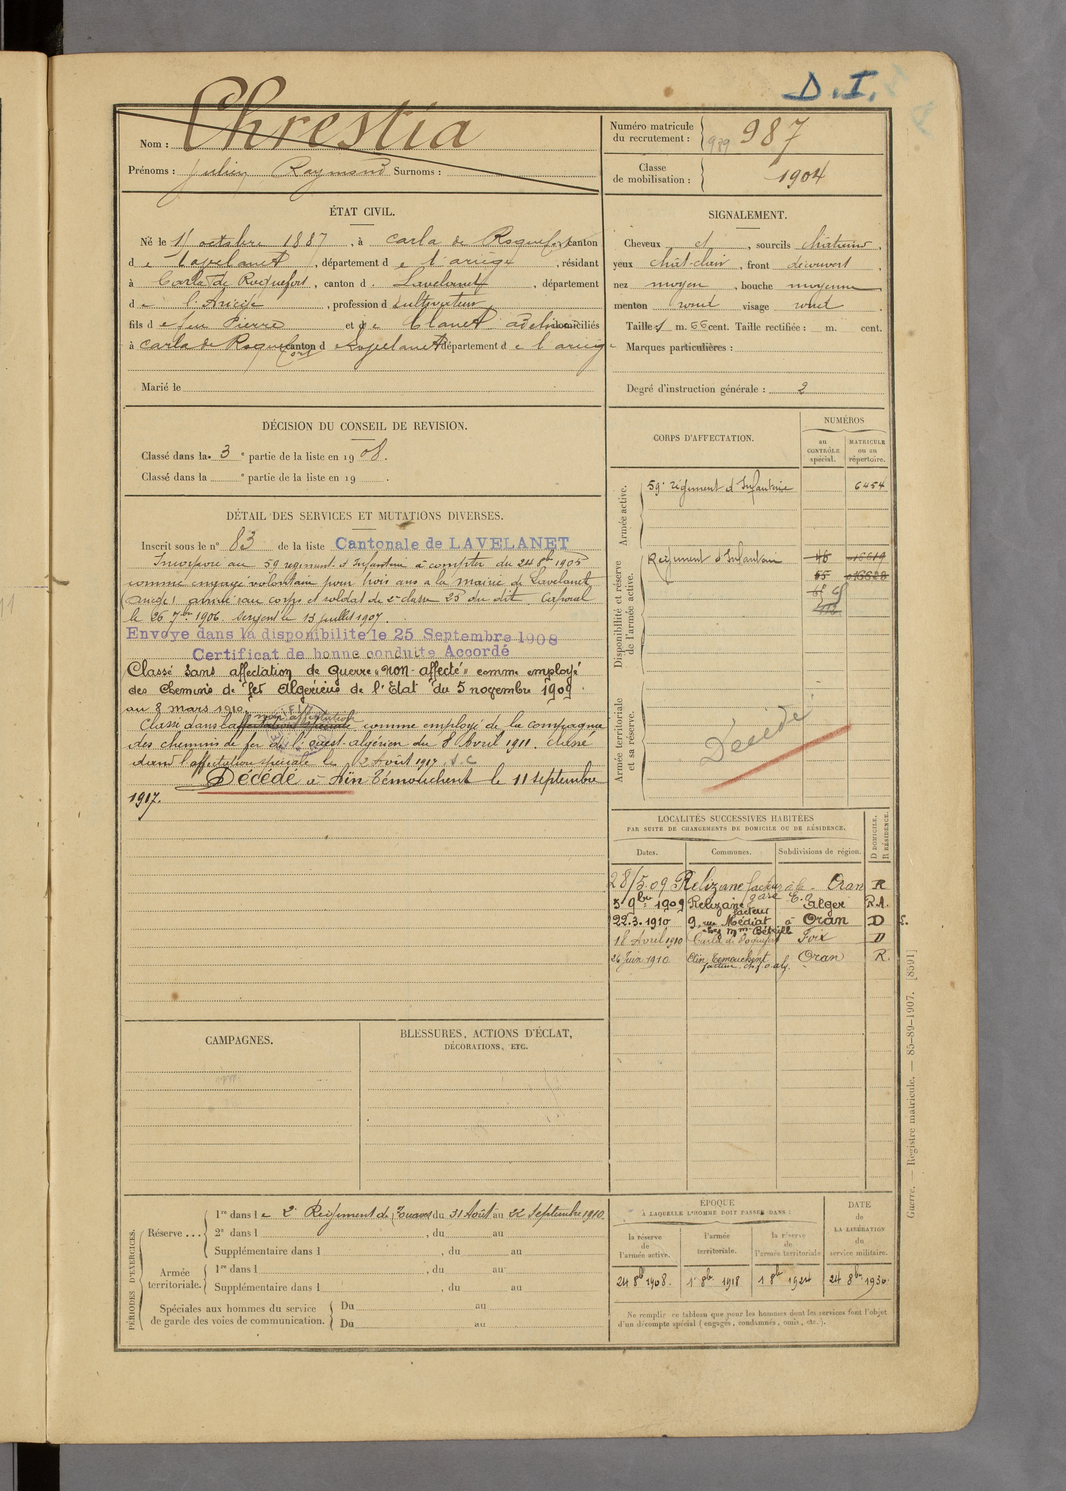 D. I.
Nom : Chrestia
Prénoms : Julien Raymond Surnoms :
Numéro matricule
du recrutement : 989 987
Classe
de mobilisation : 1904
ÉTAT CIVIL.
Né le 11 octobre 1887, à Carla de Roquefort canton
de Lavelanet, département de l'ariège, résidant
à Carla de Roquefort, canton d Lavelanet, département
de l'Ariège, profession d cultivateur
fils de feu Pierre et de Clanet adeline domiciliés
à Carla de Roquefort canton de Lavelanet département de l'ariège
Marié le
SIGNALEMENT.
Cheveux et, sourcils châtains,
yeux chât-clair, front découvert,
nez moyen, bouche moyenne
menton rond visage rond
Taille 1 m. 66 cent. Taille rectifiée : m. cent.
Marques particulières :
Degré d'instruction générale : 2
DÉCISION DU CONSEIL DE REVISION.
Classé dans la 3e partie de la liste en 1908.
Classé dans la e partie de la liste en 19 .
DÉTAIL DES SERVICES ET MUTATIONS DIVERSES.
Inscrit sous le n° 83 de la liste Cantonale de LAVELANET
Incorporé au 59 régiment d'Infanterie à compter du 24 8bre 1905
comme engagé volontaire pour trois ans à la mairie de Lavelanet
(Ariège) arrivé au corps et soldat de 2e classe 25 du dit. Caporal
le 26 7bre 1906. sergent le 13 juillet 1907.
Envoyé dans la disponibilité le 25 Septembre 1908
Certificat de bonne conduite Accordé
Classé sans affectation de Guerre "non-affecté" comme employé
des Chemins de fer Algériens de l'Etat du 5 novembre 1909
au 8 mars 1910.
non affectation
Classé dans l'affectation spéciale comme employé de la compagnie
des chemins de fer de l'ouest-algérien du 8 Avril 1911. Classé
dans l'affectation spéciale le 2 Août 1917
Décédé à Aïn Témouchent le 11 septembre
1917.
CORPS D'AFFECTATION.
NUMÉROS
au
CONTRÔLE
spécial.
MATRICULE
ou au
répertoire.
Armée active.
59e régiment d'Infanterie 6454
Disponibilité et réserve
de l'armée active.
Régiment d'Infanterie
Armée territoriale
et sa réserve.
Décédé
LOCALITÉS SUCCESSIVES HABITÉES
PAR SUITE DE CHANGEMENTS DE DOMICILE OU DE RÉSIDENCE.
Dates. Communes. Subdivisions de région. D DOMICILE. R RÉSIDENCE.
28/5.09 Relizane facteur à la gare Oran R
5 9bre 1909 Relizane facteur Alger R.A.
22.3.1910 9, rue Médiat à Oran D
18 Avril 1910 Carla de Roquefort Foix D
26 Juin 1910 Aïn Temouchent Oran R.
CAMPAGNES.
BLESSURES, ACTIONS D'ÉCLAT,
DÉCORATIONS, ETC.
PÉRIODES D'EXERCICES.
Réserve ... 1re dans le 2e Régiment de Zouaves du 31 Août au 22 Septembre 1910.
2e dans l , du au
Supplémentaire dans l , du au
Armée
territoriale. 1re dans l , du au
Supplémentaire dans l , du au
Spéciales aux hommes du service
de garde des voies de communication. Du au
Du au
ÉPOQUE
À LAQUELLE L'HOMME DOIT PASSER DANS :
la réserve
de
l'armée active.
l'armée
territoriale.
la réserve
de
l'armée territoriale
DATE
de
LA LIBÉRATION
du
service militaire.
24 8b 1908. 1 8bre 1918 1 8b 1924 24 8bre 1930.
Ne remplir ce tableau que pour les hommes dont les services font l'objet
d'un décompte spécial (engagés, condamnés, omis, etc.).
Guerre. — Registre matricule. — 85-89-1907. [8591]